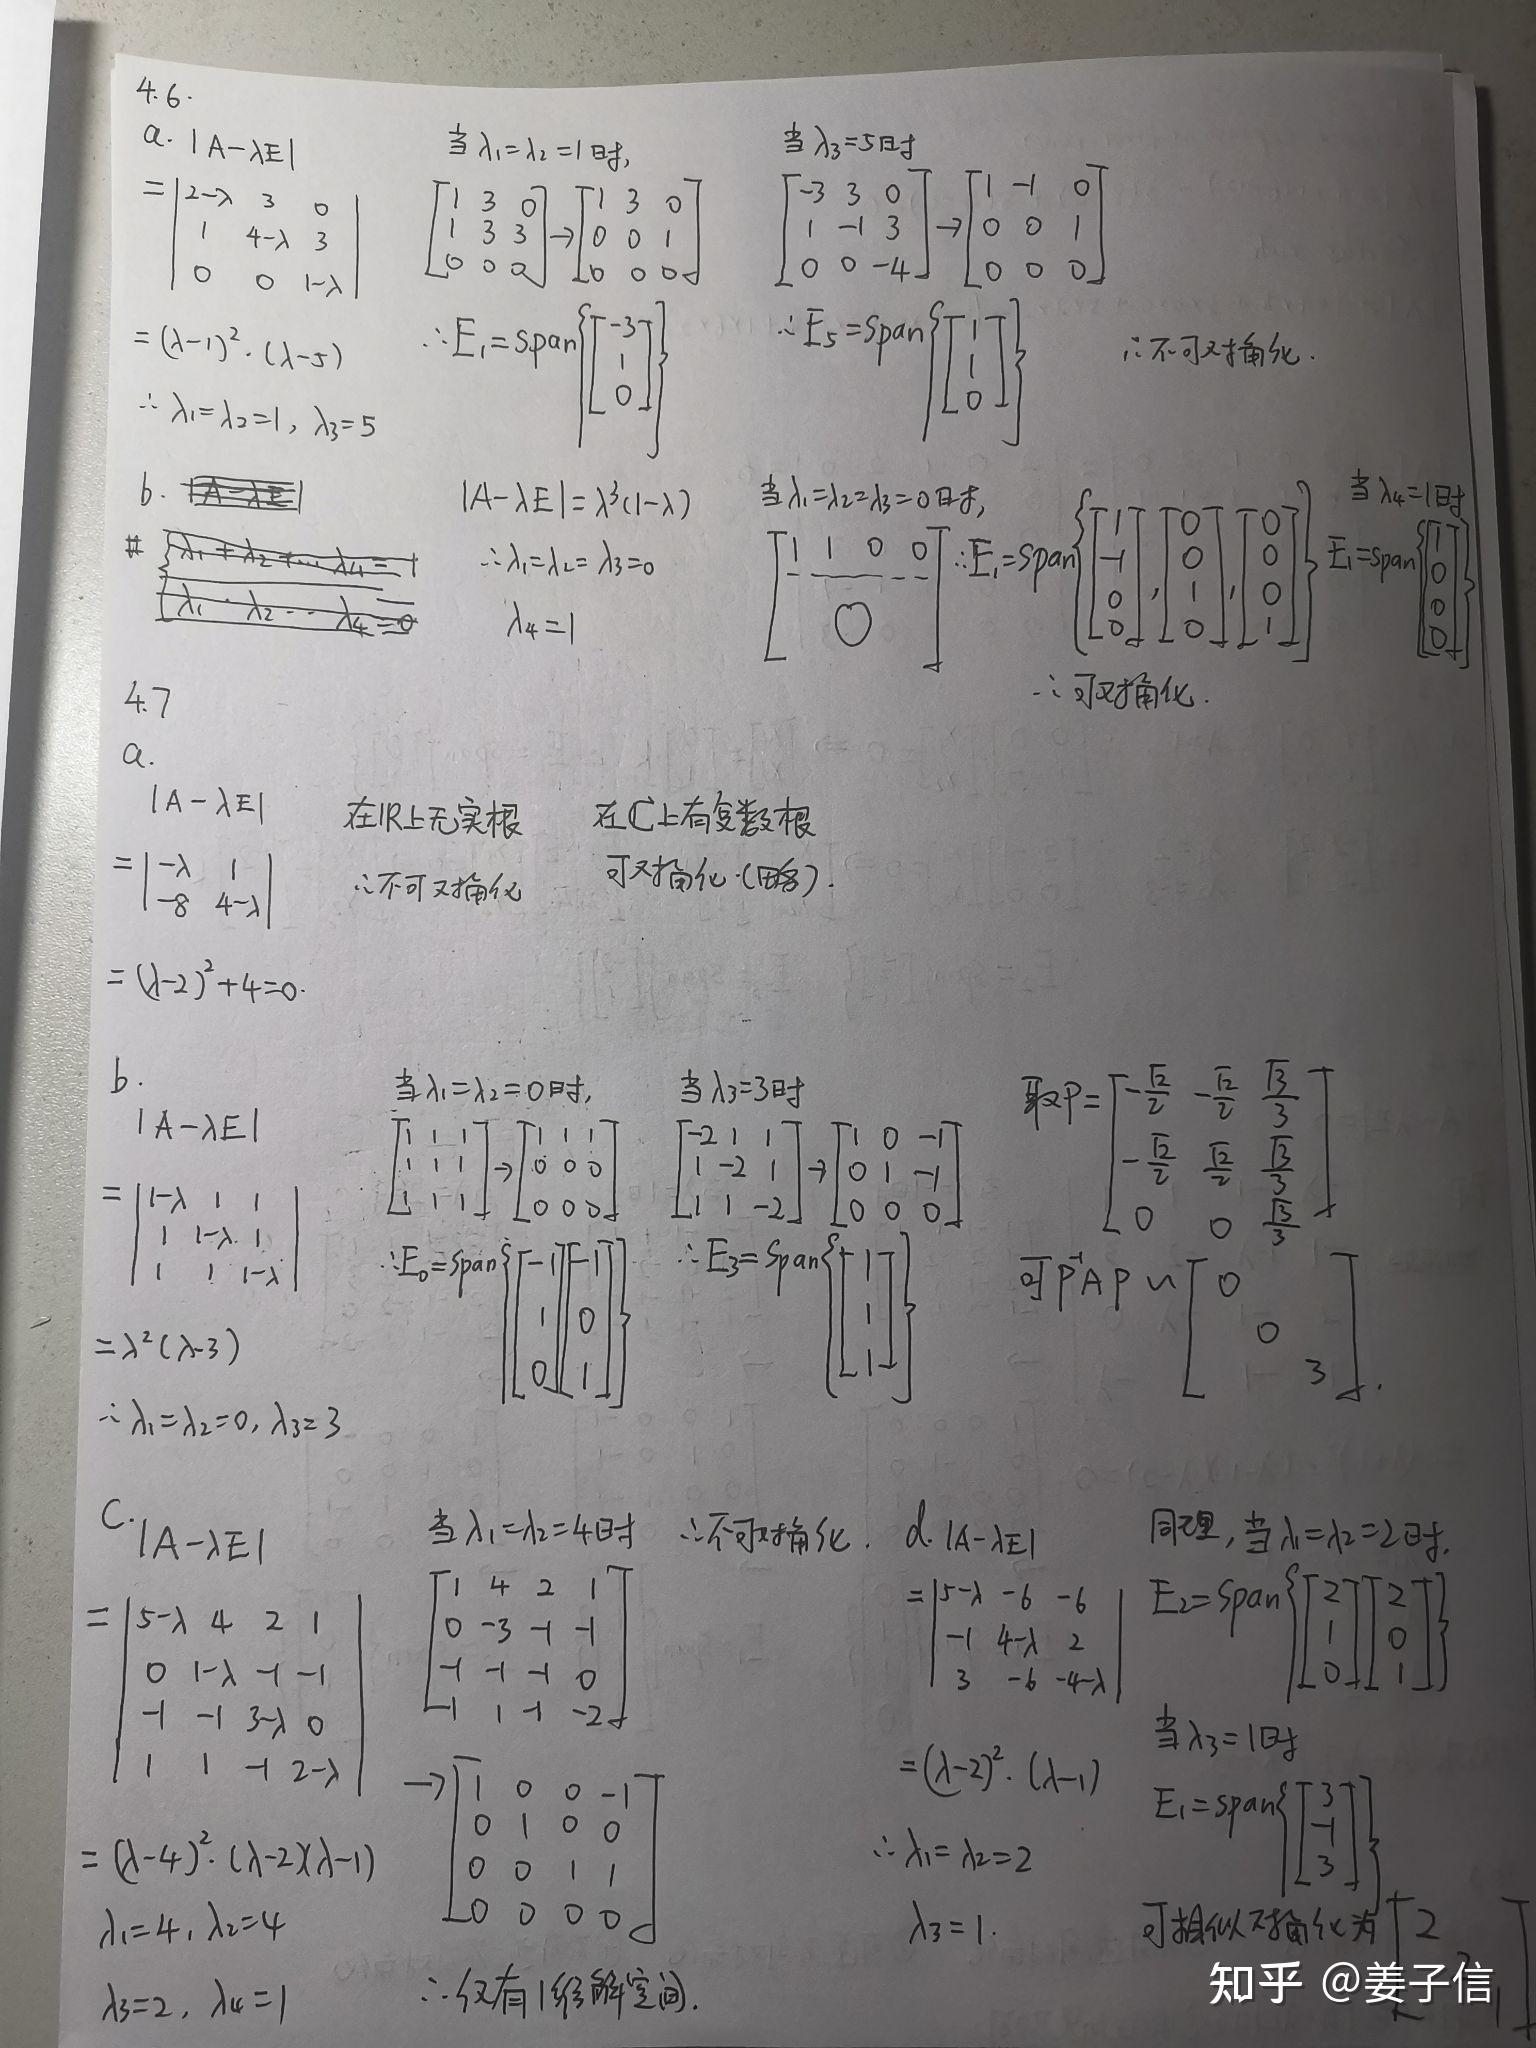 4.6.
a. |A-λE|
= |2-λ 3 0|
|1 4-λ 3|
|0 0 1-λ|
= (λ-1)²·(λ-5)
∴ λ₁=λ₂=1, λ₃=5
当λ₁=λ₂=1时,
[1 3 0] → [1 3 0]
[1 3 3] [0 0 1]
[0 0 0] [0 0 0]
∴E₁=span{[-3 1 0]}
当λ₃=5时
[-3 3 0] → [1 -1 0]
[1 -1 3] [0 0 1]
[0 0 -4] [0 0 0]
∴E₅=span{[1 1 0]}
∴不可对角化.
b. |A-λE|
λ₁+λ₂+…λ₄=1
λ₁·λ₂…λ₄=0
|A-λE|=λ³(1-λ)
∴λ₁=λ₂=λ₃=0
λ₄=1
当λ₁=λ₂=λ₃=0时,
[1 1 0 0]
[0]
∴E₁=span{[1 -1 0 0],[0 0 1 0],[0 0 0 1]}
当λ₄=1时
E₁=span{[1 0 0 0]}
∴可对角化.
4.7
a.
|A-λE|
= |-λ 1|
|-8 4-λ|
= (λ-2)²+4=0.
在ℝ上无实根
∴不可对角化
在ℂ上有复数根
可对角化.(略).
b.
|A-λE|
= |1-λ 1 1|
|1 1-λ 1|
|1 1 1-λ|
=λ²(λ-3)
∴λ₁=λ₂=0, λ₃=3
当λ₁=λ₂=0时,
[1 1 1] → [1 1 1]
[1 1 1] [0 0 0]
[1 1 1] [0 0 0]
∴E₀=span{[-1 1 0][-1 0 1]}
当λ₃=3时
[-2 1 1] → [1 0 -1]
[1 -2 1] [0 1 -1]
[1 1 -2] [0 0 0]
∴E₃=span{[1 1 1]}
取P=[-√2/2 -√2/2 √3/3]
[-√2/2 √2/2 √3/3]
[0 0 √3/3]
可P⁻¹AP∽[0
0
3].
C.
|A-λE|
= |5-λ 4 2 1|
|0 1-λ -1 -1|
|-1 -1 3-λ 0|
|1 1 -1 2-λ|
= (λ-4)²·(λ-2)(λ-1)
λ₁=4, λ₂=4
λ₃=2, λ₄=1
当λ₁=λ₂=4时
[1 4 2 1]
[0 -3 -1 -1]
[-1 -1 -1 0]
[-1 1 -1 -2]
→[1 0 0 -1]
[0 1 0 0]
[0 0 1 1]
[0 0 0 0]
∴仅有1维解空间.
∴不可对角化.
d. |A-λE|
= |5-λ -6 -6|
|-1 4-λ 2|
|3 -6 -4-λ|
= (λ-2)²·(λ-1)
∴λ₁=λ₂=2
λ₃=1.
同理,当λ₁=λ₂=2时.
E₂=span{[2 1 0][2 0 1]}
当λ₃=1时
E₁=span{[3 -1 3]}
可相似对角化为[2
2
1]
知乎 @姜子信